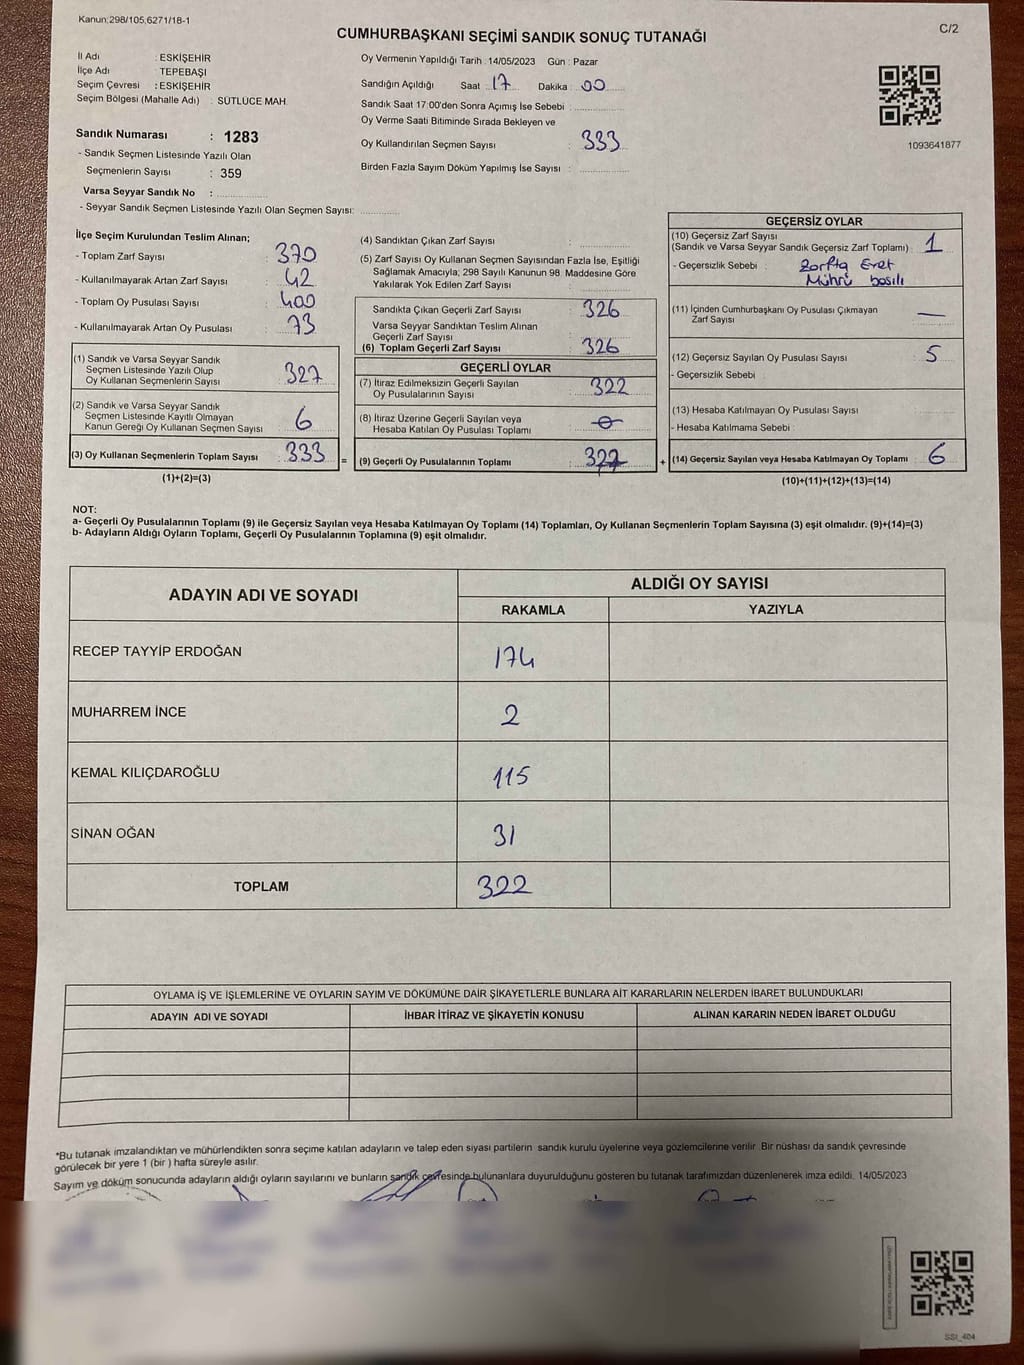 Kanun;298/105,6271/18-1
C/2
CUMHURBAŞKANI SEÇİMİ SANDIK SONUÇ TUTANAĞI
İl Adı : ESKİŞEHİR
İlçe Adı : TEPEBAŞI
Seçim Çevresi : ESKİŞEHİR
Seçim Bölgesi (Mahalle Adı) : SÜTLÜCE MAH.
Sandık Numarası : 1283
- Sandık Seçmen Listesinde Yazılı Olan
Seçmenlerin Sayısı : 359
Varsa Seyyar Sandık No :
- Seyyar Sandık Seçmen Listesinde Yazılı Olan Seçmen Sayısı:
Oy Vermenin Yapıldığı Tarih : 14/05/2023 Gün : Pazar
Sandığın Açıldığı Saat : 17 Dakika : 00
Sandık Saat 17:00'den Sonra Açımış İse Sebebi :
Oy Verme Saati Bitiminde Sırada Bekleyen ve
Oy Kullandırılan Seçmen Sayısı : 333
Birden Fazla Sayım Döküm Yapılmış İse Sayısı :
1093641877
İlçe Seçim Kurulundan Teslim Alınan;
- Toplam Zarf Sayısı : 370
- Kullanılmayarak Artan Zarf Sayısı : 42
- Toplam Oy Pusulası Sayısı : 400
- Kullanılmayarak Artan Oy Pusulası : 73
(1) Sandık ve Varsa Seyyar Sandık
Seçmen Listesinde Yazılı Olup
Oy Kullanan Seçmenlerin Sayısı : 327
(2) Sandık ve Varsa Seyyar Sandık
Seçmen Listesinde Kayıtlı Olmayan
Kanun Gereği Oy Kullanan Seçmen Sayısı : 6
(3) Oy Kullanan Seçmenlerin Toplam Sayısı : 333
(1)+(2)=(3)
=
(4) Sandıktan Çıkan Zarf Sayısı :
(5) Zarf Sayısı Oy Kullanan Seçmen Sayısından Fazla İse, Eşitliği
Sağlamak Amacıyla; 298 Sayılı Kanunun 98. Maddesine Göre
Yakılarak Yok Edilen Zarf Sayısı :
Sandıkta Çıkan Geçerli Zarf Sayısı : 326
Varsa Seyyar Sandıktan Teslim Alınan
Geçerli Zarf Sayısı :
(6) Toplam Geçerli Zarf Sayısı : 326
GEÇERLİ OYLAR
(7) İtiraz Edilmeksizin Geçerli Sayılan
Oy Pusulalarının Sayısı : 322
(8) İtiraz Üzerine Geçerli Sayılan veya
Hesaba Katılan Oy Pusulası Toplamı : 0
(9) Geçerli Oy Pusulalarının Toplamı :
+
GEÇERSİZ OYLAR
(10) Geçersiz Zarf Sayısı
(Sandık ve Varsa Seyyar Sandık Geçersiz Zarf Toplamı) : 1
- Geçersizlik Sebebi : Zarfta Evet
Mührü basılı
(11) İçinden Cumhurbaşkanı Oy Pusulası Çıkmayan
Zarf Sayısı : —
(12) Geçersiz Sayılan Oy Pusulası Sayısı : 5
- Geçersizlik Sebebi :
(13) Hesaba Katılmayan Oy Pusulası Sayısı :
- Hesaba Katılmama Sebebi :
(14) Geçersiz Sayılan veya Hesaba Katılmayan Oy Toplamı : 6
(10)+(11)+(12)+(13)=(14)
NOT:
a- Geçerli Oy Pusulalarının Toplamı (9) ile Geçersiz Sayılan veya Hesaba Katılmayan Oy Toplamı (14) Toplamları, Oy Kullanan Seçmenlerin Toplam Sayısına (3) eşit olmalıdır. (9)+(14)=(3)
b- Adayların Aldığı Oyların Toplamı, Geçerli Oy Pusulalarının Toplamına (9) eşit olmalıdır.
ADAYIN ADI VE SOYADI
ALDIĞI OY SAYISI
RAKAMLA YAZIYLA
RECEP TAYYİP ERDOĞAN 174
MUHARREM İNCE 2
KEMAL KILIÇDAROĞLU 115
SİNAN OĞAN 31
TOPLAM 322
OYLAMA İŞ VE İŞLEMLERİNE VE OYLARIN SAYIM VE DÖKÜMÜNE DAİR ŞİKAYETLERLE BUNLARA AİT KARARLARIN NELERDEN İBARET BULUNDUKLARI
ADAYIN ADI VE SOYADI İHBAR İTİRAZ VE ŞİKAYETİN KONUSU ALINAN KARARIN NEDEN İBARET OLDUĞU
*Bu tutanak imzalandıktan ve mühürlendikten sonra seçime katılan adayların ve talep eden siyasi partilerin sandık kurulu üyelerine veya gözlemcilerine verilir. Bir nüshası da sandık çevresinde
görülecek bir yere 1 (bir ) hafta süreyle asılır.
Sayım ve döküm sonucunda adayların aldığı oyların sayılarını ve bunların sandık çevresinde bulunanlara duyurulduğunu gösteren bu tutanak tarafımızdan düzenlenerek imza edildi. 14/05/2023
SSI_404